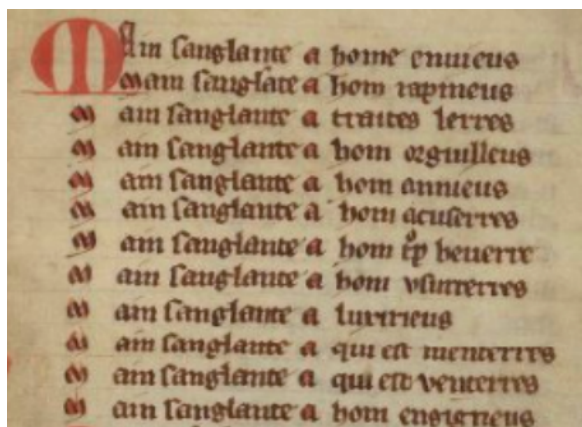 Main sanglante a home enuieus
Main sanglāte a hom rapineus
Main sanglante a traites lerres
Main sanglante a hom orguilleus
Main sanglante a hom annieus
Main sanglante a hom acuserres
Main sanglante a hom tͦp beuerre
Main sanglante a hom vsurerres
Main sanglante a luxurieus
Main sanglante a qui est menterres
Main sanglante a qui est venterres
Main sanglante a hom engigneus